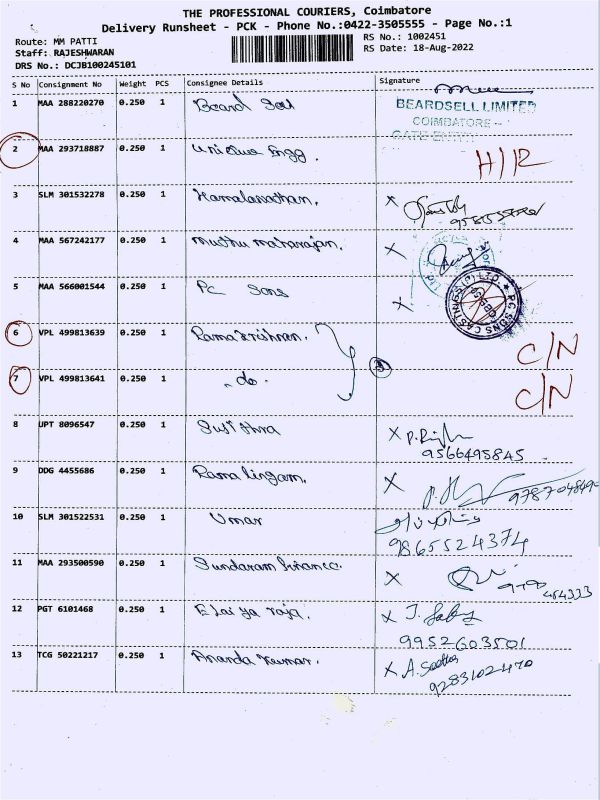 THE PROFESSIONAL COURIERS, Coimbatore
Delivery Runsheet - PCK - Phone No.:0422-3505555 - Page No.:1
Route: MM PATTI
RS No.: 1002451
Staff: RAJESHWARAN
RS Date: 18-Aug-2022
DRS No.: DCJB100245101
S No Consignment No Weight PCS Consignee Details Signature
1 MAA 288220270 0.250 1 Beard Sell
BEARDSELL LIMITED
COIMBATORE
GATE ENTRY
2 MAA 293718887 0.250 1 Unique Engg. H/R
3 SLM 301532278 0.250 1 X
4 MAA 567242177 0.250 1 muthu maharajan. X
5 MAA 566001544 0.250 1 PC Sons X
PG SONS CASTINGS (P) LTD.
6 VPL 499813639 0.250 1 Ramakrishnan. C/N
7 VPL 499813641 0.250 1 " do. C/N
8 UPT 8096547 0.250 1 X
9566495845
9 DDG 4455686 0.250 1 Ramalingam. X
9787048490
10 SLM 301522531 0.250 1 Umar
9865524374
11 MAA 293500590 0.250 1 Sundaram finance. X
464333
12 PGT 6101468 0.250 1 Elaiya raja. X
9952603501
13 TCG 50221217 0.250 1 Ananda kumar. X
9283102470